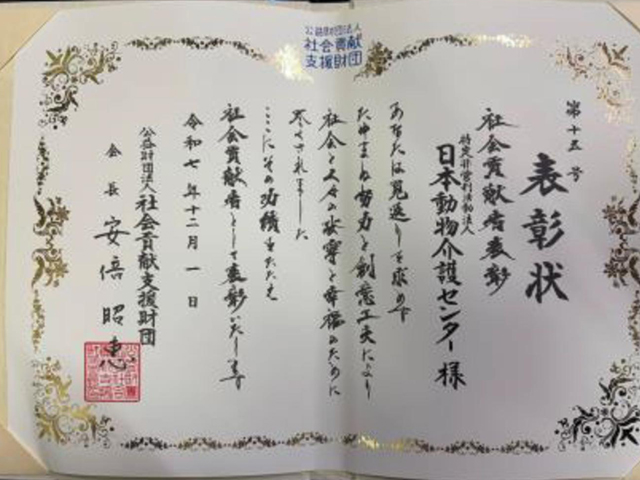 公益財団法人
社会貢献
支援財団
第十五号
表彰状
社会貢献者表彰
特定非営利活動法人
日本動物介護センター 様
あなたは見返りを求めず
たゆまぬ努力と創意工夫により
社会と人々の安寧と幸福のために
尽くされました
ここにその功績をたたえ
社会貢献者として表彰いたします
令和七年十二月一日
公益財団法人 社会貢献支援財団
会長 安倍昭恵